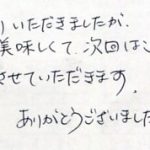 いただきましたが、
美味しくて、次回は
させていただきます。
ありがとうございました